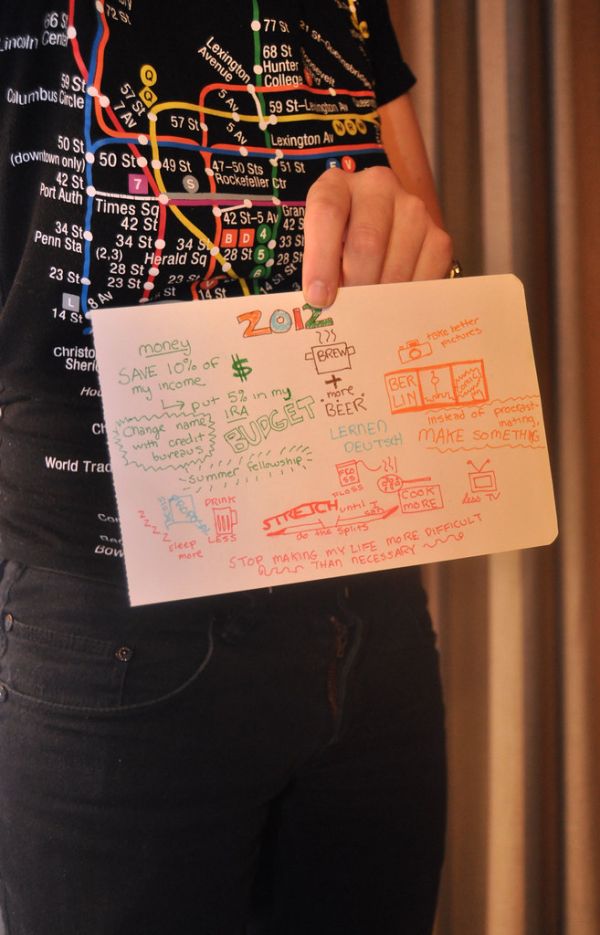 66 St
Lincoln Center
72 St
59 St
Columbus Circle
57 St
7 Av
Q
Q
57 St
Lexington
Avenue
77 St
68 St
Hunter
College
5 Av
59 St–Lexington Av
5 Av
Lexington Av
50 St
(downtown only)
50 St
49 St
47–50 Sts
Rockefeller Ctr
51 St
E
V
7
S
42 St
Port Auth
Times Sq
42 St
42 St–5 Av
Gran
42 S
34 St
Penn Sta
34 St
(2,3)
34 St
Herald Sq
B
D
4
5
6
33 S
28 St
28 St
28 S
23 St
23 St
14 St
L
14 St
8 Av
Christo
Sheri
Hou
World Trad
Bow
2012
money
SAVE 10% OF
my income
$
put 5% in my
IRA
Change name
with credit
bureaus
BUDGET
Summer fellowship
BREW
+
more
BEER
LERNEN
DEUTSCH
take better
pictures
BER
LIN
instead of procrast-
inating,
MAKE SOMETHING
FLOSS
COOK
MORE
less TV
zzzz
sleep
more
DRINK
LESS
STRETCH
until I
can
do the splits
STOP MAKING MY LIFE MORE DIFFICULT
THAN NECESSARY